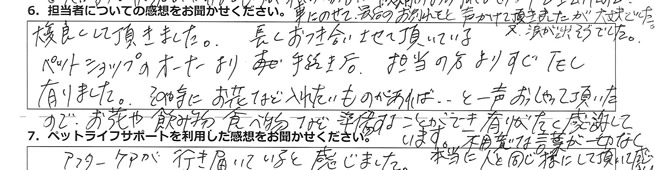 6. 担当者についての感想をお聞かせください。車にのせて最后のお別れをと声かけて頂きましたが大丈夫でした。
又、涙が出そうでした。
大変良くして頂きました。長くおつき合いさせて頂いている
ペットショップのオーナーより 手続き后、担当の方よりすぐTEL
有りました。その時に お花など入れたいものがあれば‥と一声おっしゃって頂いた
ので、お花や飲み物 食べ物など 準備することができ 有りがたく感謝して
います。不用意な言葉が一切なく
7. ペットライフサポートを利用した感想をお聞かせください。
アフターケアが 行き届いていると 感じました。本当に 人と同じ様にして頂いて